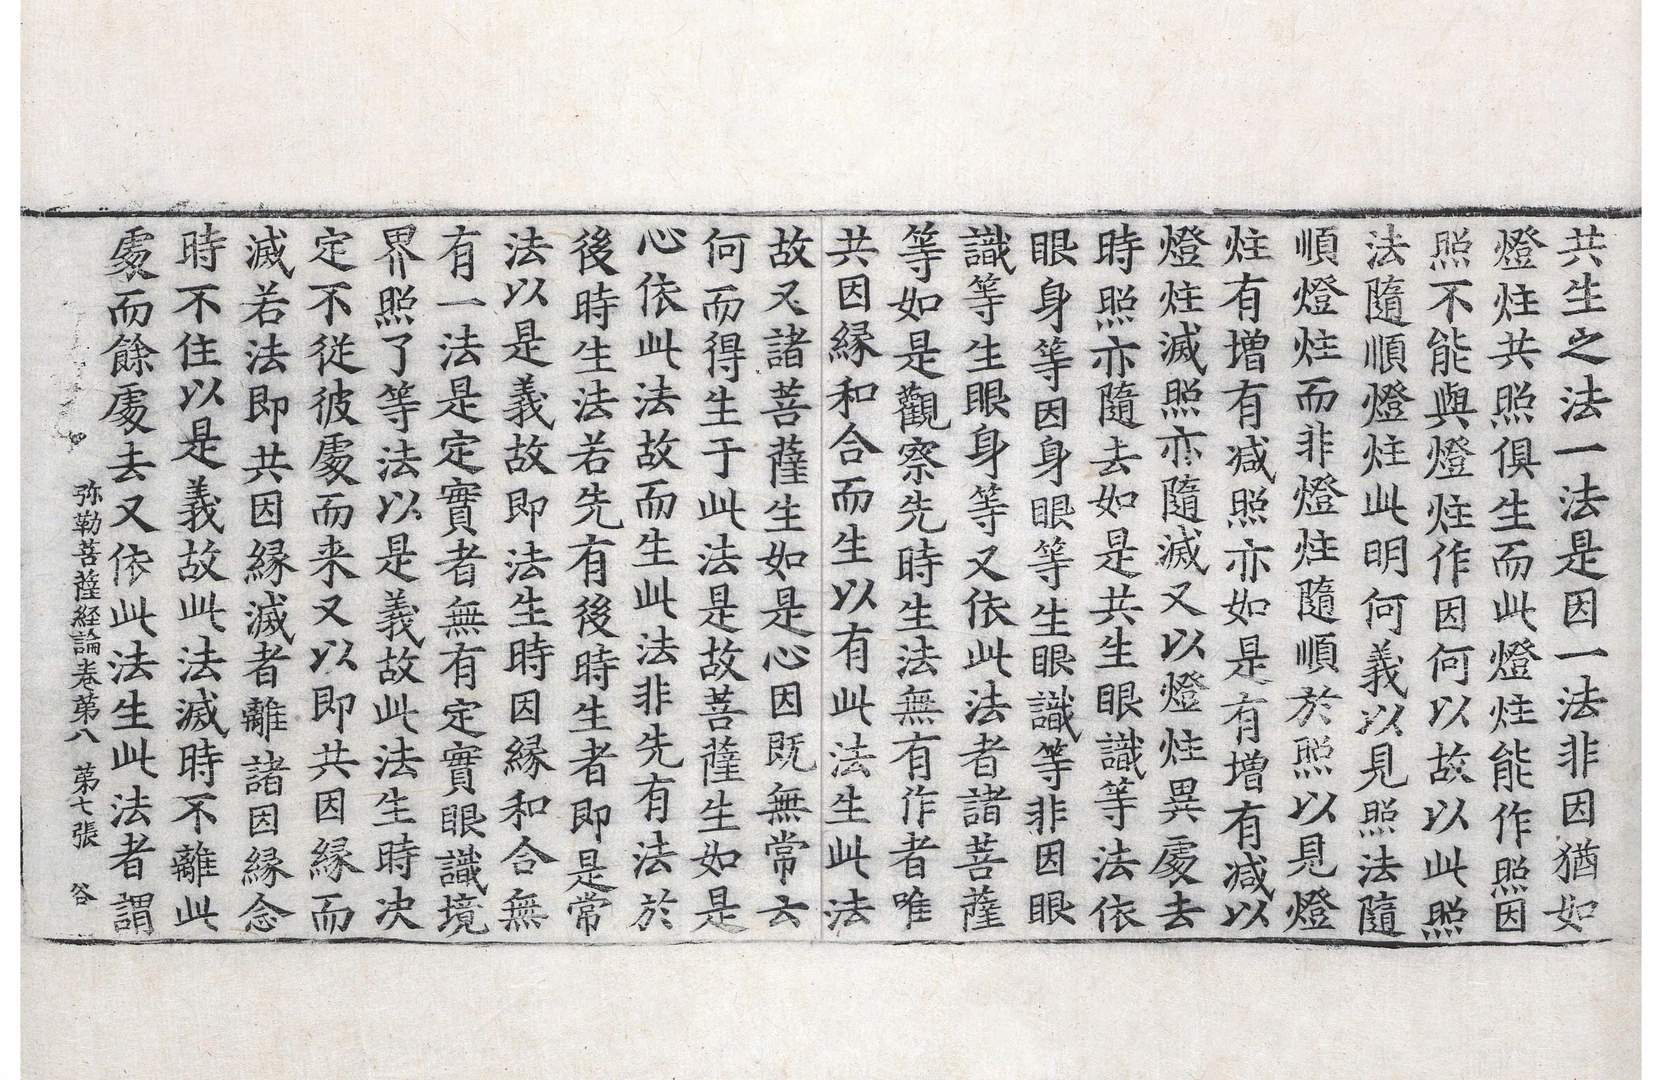 共生之法一法是因一法非因猶如
燈炷共照俱生而此燈炷能作照因
照不能與燈炷作因何以故以此照
法隨順燈炷此明何義以見照法隨
順燈炷而非燈炷隨順於照以見燈
炷有增有减照亦如是有增有减以
燈炷滅照亦隨滅又以燈炷異處去
時照亦隨去如是共生眼識等法依
眼身等因身眼等生眼識等非因眼
識等生眼身等又依此法者諸菩薩
等如是觀察先時生法無有作者唯
共因縁和合而生以有此法生此法
故又諸菩薩生如是心因既無常云
何而得生于此法是故菩薩生如是
心依此法故而生此法非先有法於
後時生法若先有後時生者即是常
法以是義故即法生時因縁和合無
有一法是定實者無有定實眼識境
界照了等法以是義故此法生時决
定不從彼處而来又以即共因縁而
滅若法即共因縁滅者離諸因縁念
時不住以是義故此法滅時不離此
處而餘處去又依此法生此法者謂
弥勒菩薩経論卷第八 第七張 谷